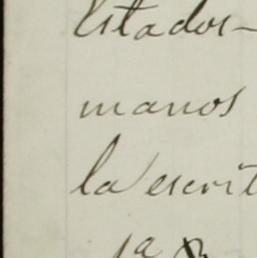 Estados-
manos
la escrit
1ª B